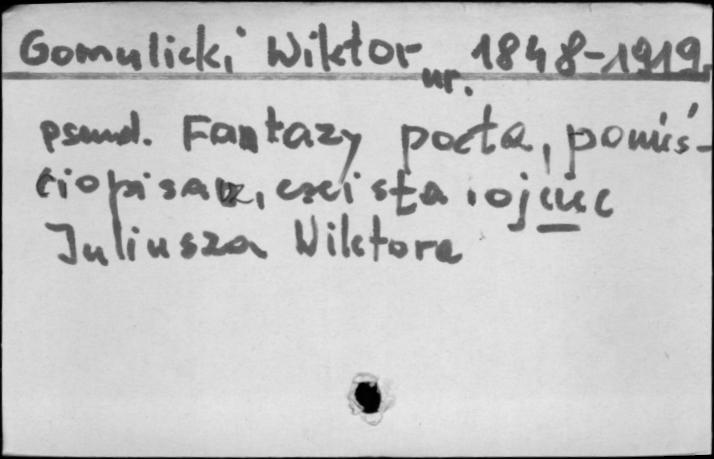 Gomulicki Wiktor ur. 1848-1919
pseud. Fantazy poeta, powieś-
ciopisarz, eseista, ojciec
Juliusza Wiktora